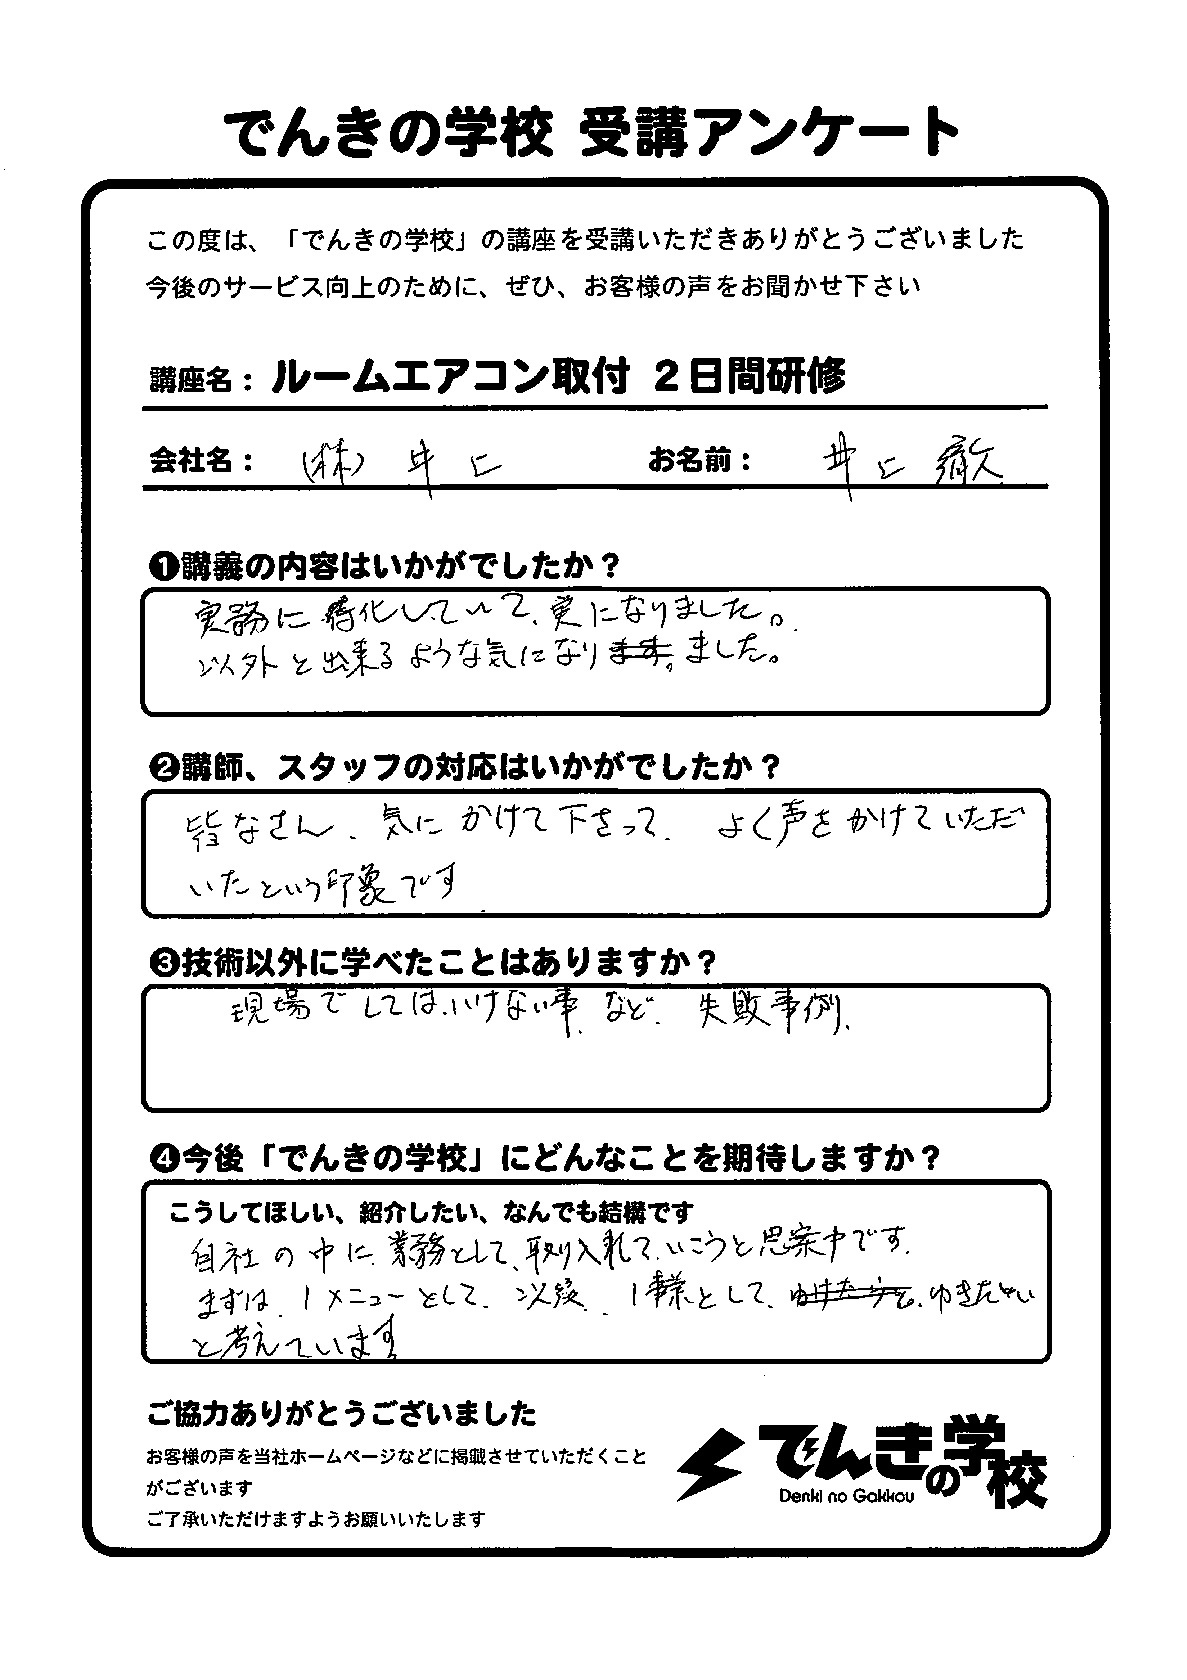 でんきの学校 受講アンケート
この度は、「でんきの学校」の講座を受講いただきありがとうございました
今後のサービス向上のために、ぜひ、お客様の声をお聞かせ下さい
講座名： ルームエアコン取付 2日間研修
会社名： (株) 井上 お名前： 井上 徹
❶講義の内容はいかがでしたか？
実務に特化していて、実になりました。
以外と出来るような気になります。ました。
❷講師、スタッフの対応はいかがでしたか？
皆なさん、気にかけて下さって、よく声をかけていただ
いたという印象です
❸技術以外に学べたことはありますか？
現場でしてはいけない事、など、失敗事例、
❹今後「でんきの学校」にどんなことを期待しますか？
こうしてほしい、紹介したい、なんでも結構です
自社の中に業務として、取り入れて、いこうと思案中です、
まずは、1メニューとして、以後、1事業として、ゆきたい
と考えています
ご協力ありがとうございました
お客様の声を当社ホームページなどに掲載させていただくこと
がございます
ご了承いただけますようお願いいたします
でんきの学校
Denki no Gakkou